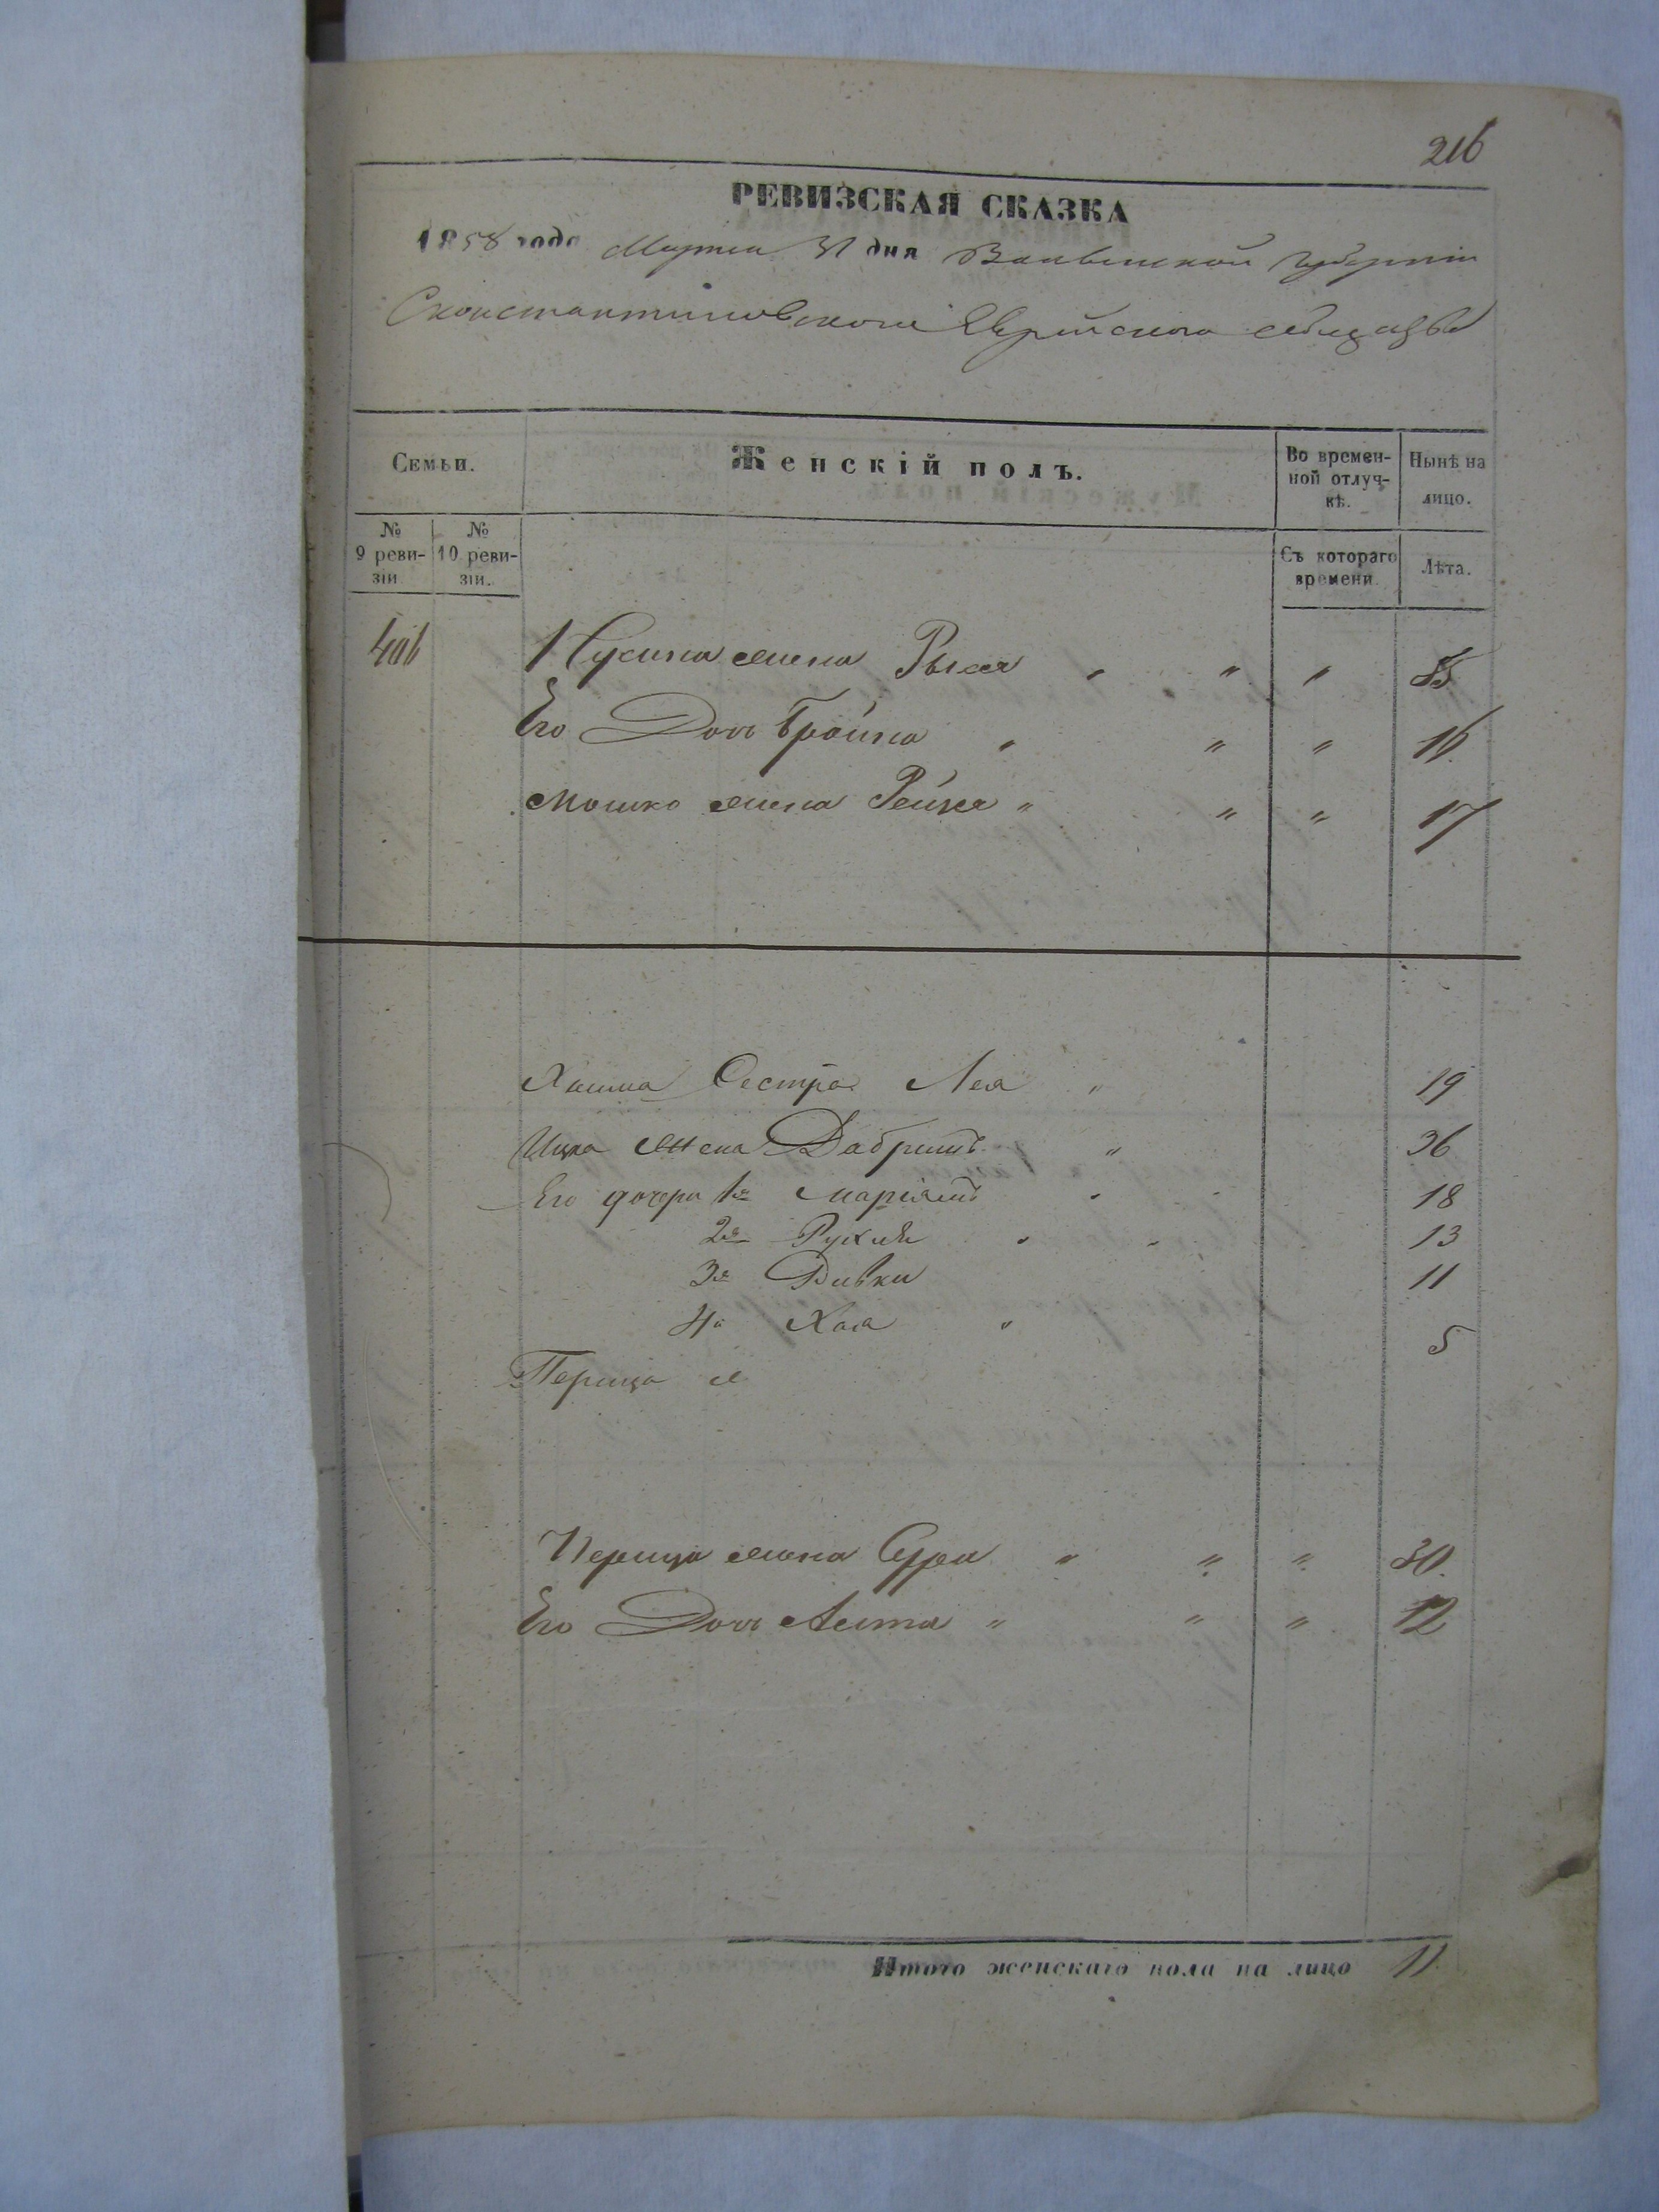 216
РЕВИЗСКАЯ СКАЗКА
1858 года Марта 31 дня Волынской Губерніи
Сконстантиновского Еврейского общества
Семьи.
Женскій полъ.
Во времен-
ной отлуч-
кѣ.
Нынѣ на
лицо.
№
9 реви-
зіи
№
10 реви-
зіи.
Съ котораго
времени
Лѣта.
406 Нусина жена Рыся " " "
Его Дочь Бройна " " " 16
Мошко жена Рейзя " " " 17
Сестра Лея " 19
Ицка жена Добришъ " 36
Его дочери 1я Маріямъ " 18
2я Рухля " 13
3я Ривка 11
4я Хая " 5
Перица ж
Перица жена Сура " " " 30
Его Дочь " " " 12
Итого женскаго пола на лицо 11